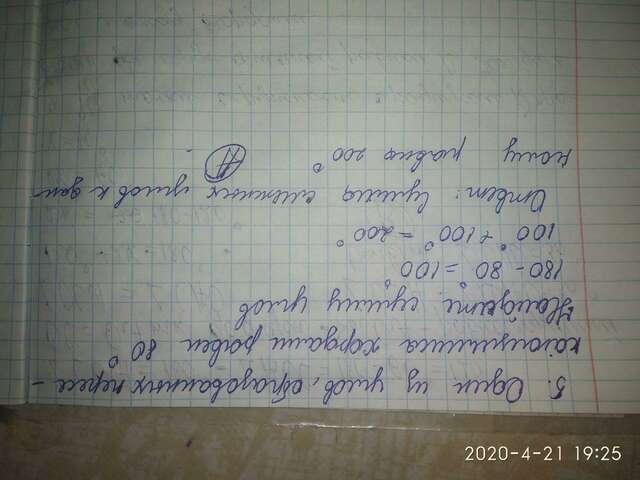 5. Один из углов, образованных пересе-
кающимися хордами равен 80°
Найдите сумму углов
180 - 80° = 100°
100° + 100° = 200°
Ответ: Сумма смежных углов к дан-
ному равна 200°
2020-4-21 19:25